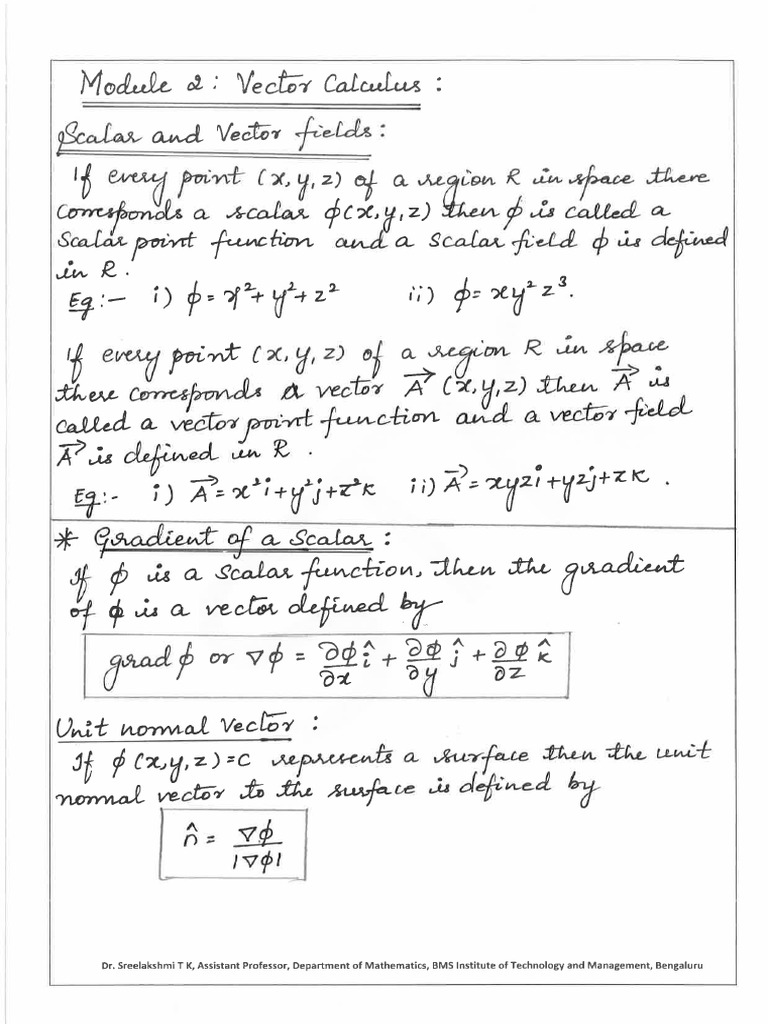 Module 2: Vector Calculus:
Scalar and Vector fields:
If every point (x, y, z) of a region R in space there
corresponds a scalar ϕ(x, y, z) then ϕ is called a
scalar point function and a scalar field ϕ is defined
in R.
Eg:- i) ϕ = x² + y² + z² ii) ϕ = xy² z³.
If every point (x, y, z) of a region R in space
there corresponds a vector A⃗ (x, y, z) then A⃗ is
called a vector point function and a vector field
A⃗ is defined in R.
Eg:- i) A⃗ = x²i + y²j + z²k ii) A⃗ = xyzi + yzj + zk.
* Gradient of a Scalar:
If ϕ is a scalar function, then the gradient
of ϕ is a vector defined by
grad ϕ or ∇ϕ = ∂ϕ/∂x î + ∂ϕ/∂y ĵ + ∂ϕ/∂z k̂
Unit normal Vector:
If ϕ (x, y, z) = c represents a surface then the unit
normal vector to the surface is defined by
n̂ = ∇ϕ/|∇ϕ|
Dr. Sreelakshmi T K, Assistant Professor, Department of Mathematics, BMS Institute of Technology and Management, Bengaluru